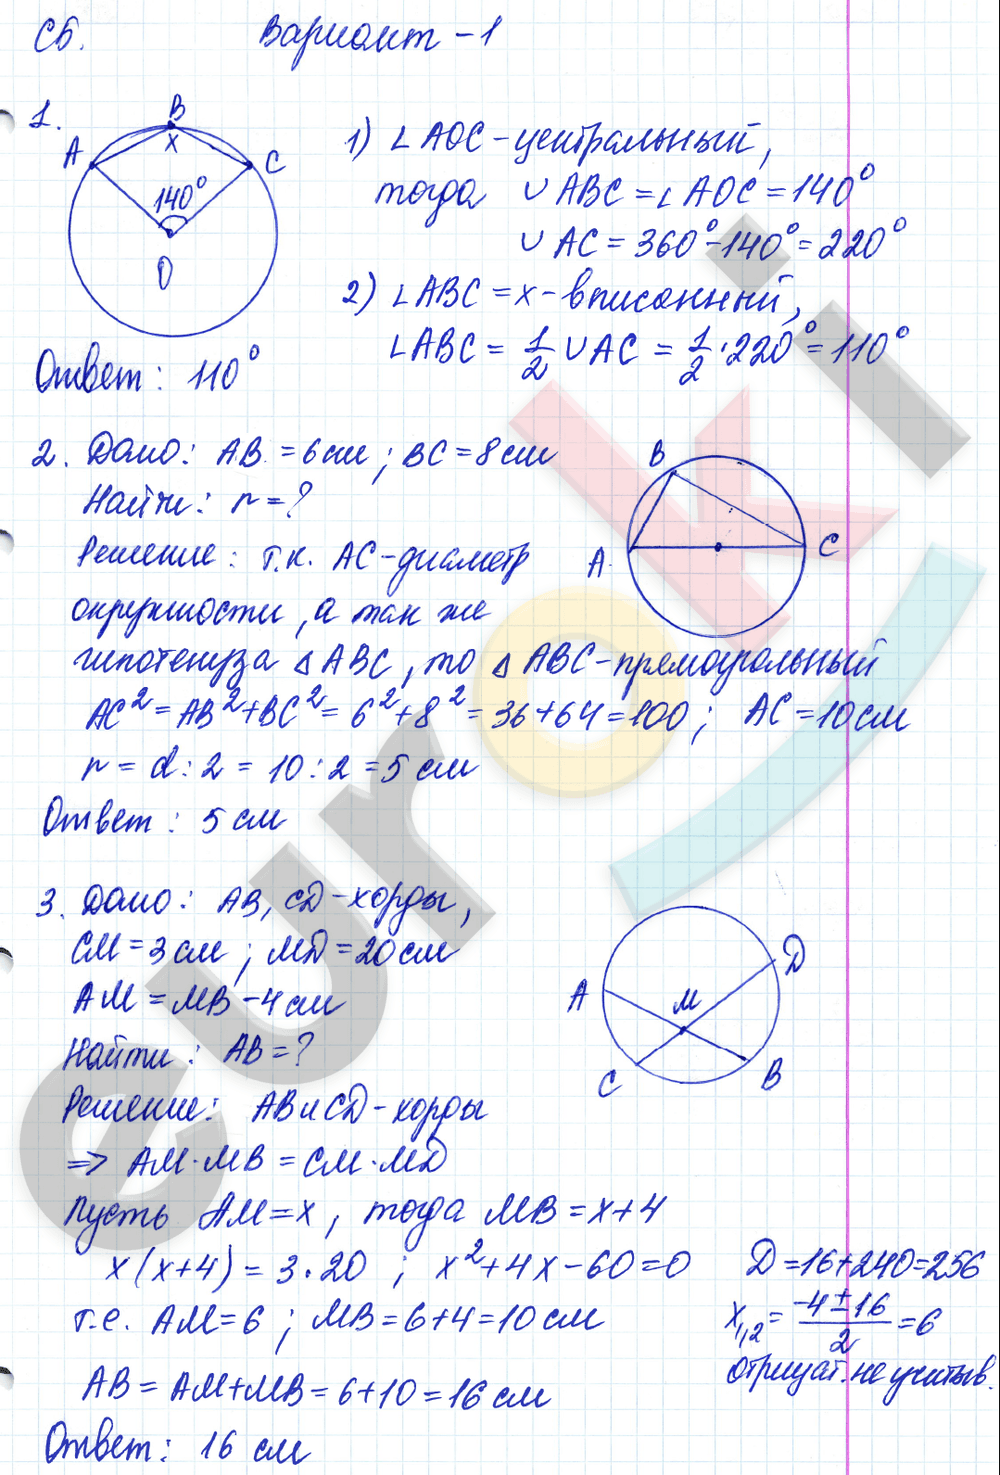 С6. Вариант - 1
1.
B
A
x
C
140°
O
1) ∠AOC - центральный,
тогда ∪ABC = ∠AOC = 140°
∪AC = 360° - 140° = 220°
2) ∠ABC = x - вписанный,
∠ABC = 1/2 ∪AC = 1/2 · 220° = 110°
Ответ: 110°
2. Дано: AB = 6 см; BC = 8 см
Найти: r = ?
B
A
C
Решение: т.к. AC - диаметр
окружности, а так же
гипотенуза △ABC, то △ABC - прямоугольный
AC² = AB² + BC² = 6² + 8² = 36 + 64 = 100; AC = 10 см
r = d : 2 = 10 : 2 = 5 см
Ответ: 5 см
3. Дано: AB, CD - хорды,
CM = 3 см; MD = 20 см
AM = MB - 4 см
Найти: AB = ?
D
A
M
C
B
Решение: AB и CD - хорды
=> AM · MB = CM · MD
Пусть AM = x, тогда MB = x + 4
x(x + 4) = 3 · 20; x² + 4x - 60 = 0 D = 16 + 240 = 256
т.е. AM = 6; MB = 6 + 4 = 10 см x₁,₂ = (-4 ± 16)/2 = 6
отрицат. не учитыв.
AB = AM + MB = 6 + 10 = 16 см
Ответ: 16 см
euroki